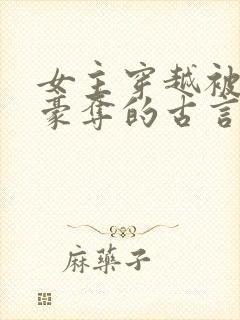 女主穿越被
豪奪的古言
麻藥子